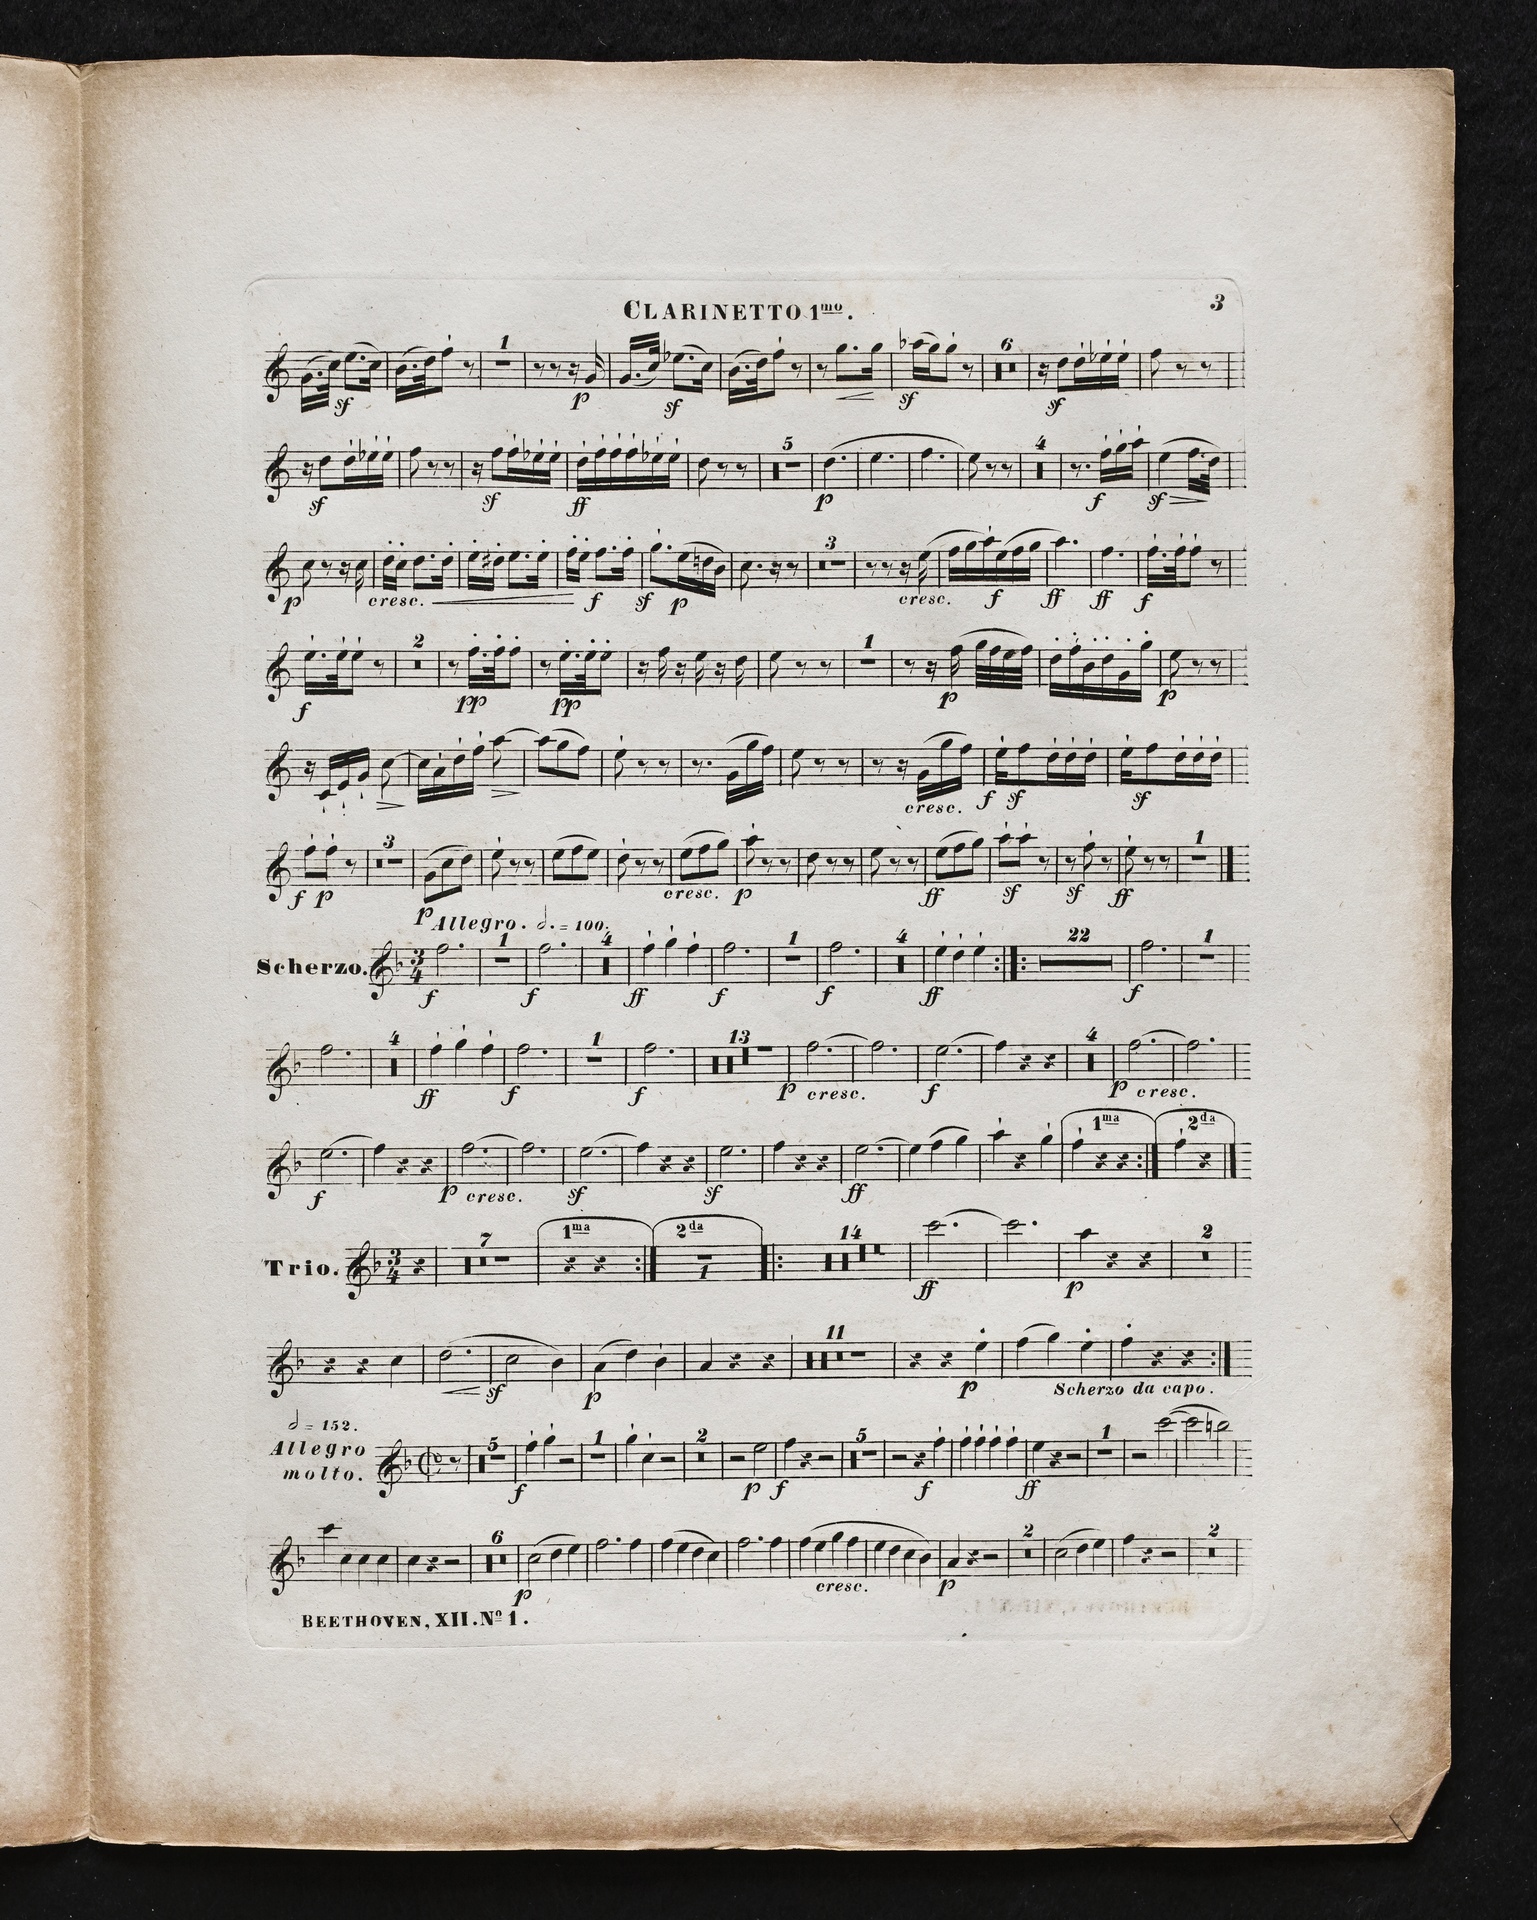 CLARINETTO 1mo.
3
1
6
sf
p
sf
sf
sf
5
4
sf
sf
ff
p
f
sf
3
p
cresc.
f
sf
p
cresc.
f
ff
ff
f
2
1
f
pp
pp
p
p
cresc.
f
sf
sf
3
1
f
p
p
cresc.
p
ff
sf
sf
ff
Allegro. 𝅗𝅥. = 100.
Scherzo.
3
4
1
4
1
4
22
1
f
f
ff
f
f
ff
f
4
1
13
4
ff
f
f
p cresc.
f
p cresc.
1ma
2da
f
p cresc.
sf
sf
ff
Trio.
3
4
7
1ma
2da
1
14
2
ff
p
11
sf
p
p
Scherzo da capo.
𝅗𝅥 = 152.
Allegro
molto.
5
1
2
5
1
f
p
f
f
ff
6
2
2
p
cresc.
p
BEETHOVEN, XII. No 1.